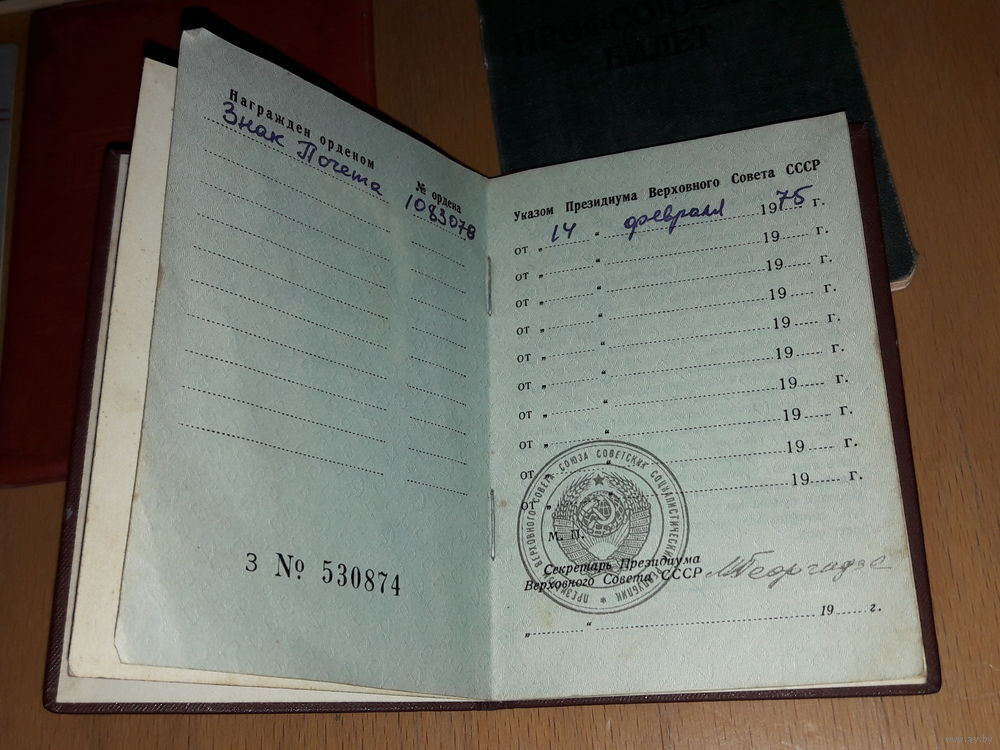 ПРОФСОЮЗНЫЙ
БИЛЕТ
Награжден орденом
№ ордена
Знак Почета
1083078
З № 530874
Указом Президиума Верховного Совета СССР
от „ 14 “ февраля 1975 г.
от „ “ 19 г.
от „ “ 19 г.
от „ “ 19 г.
от „ “ 19 г.
от „ “ 19 г.
от „ “ 19 г.
от „ “ 19 г.
от „ “ 19 г.
от „ “ 19 г.
ПРЕЗИДИУМ ВЕРХОВНОГО СОВЕТА СОЮЗА СОВЕТСКИХ СОЦИАЛИСТИЧЕСКИХ РЕСПУБЛИК
М. П.
Секретарь Президиума
Верховного Совета СССР МГеоргадзе
„ “ 19 г.